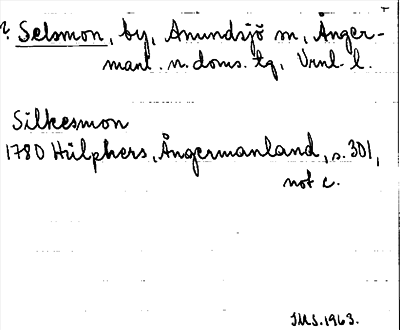 Selsmon, by, Anundsjö sn, Ånger-
manl. n. doms. tg, Vrnl. l.
Silkesmon
1780 Hülphers, Ångermanland, s. 301,
not c.
IMS. 1963.